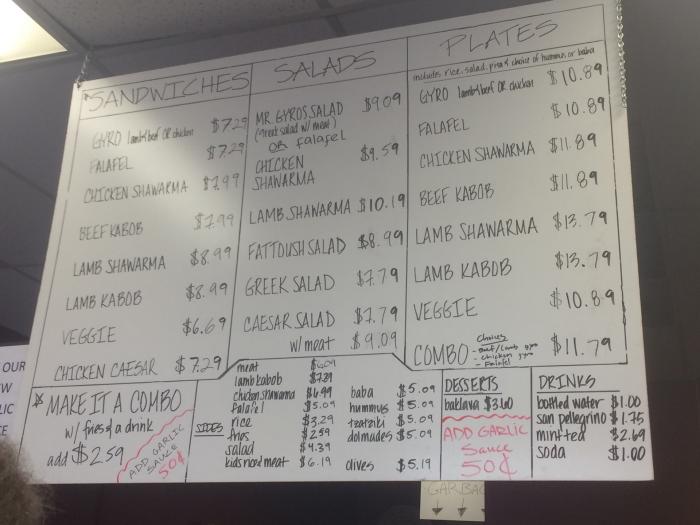 SANDWICHES
GYRO lamb/beef OR chicken $7.29
FALAFEL $7.29
CHICKEN SHAWARMA $7.99
BEEF KABOB $7.99
LAMB SHAWARMA $8.99
LAMB KABOB $8.99
VEGGIE $6.69
CHICKEN CAESAR $7.29
MAKE IT A COMBO
w/ fries & a drink
add $2.59
ADD GARLIC
SAUCE
50¢
SALADS
MR. GYROS SALAD $9.09
(Greek salad w/ meat)
OR falafel
CHICKEN $9.59
SHAWARMA
LAMB SHAWARMA $10.19
FATTOUSH SALAD $8.99
GREEK SALAD $7.79
CAESAR SALAD $7.79
w/ meat $9.09
PLATES
includes rice, salad, pita & choice of hummus or baba
GYRO lamb/beef OR chicken $10.89
FALAFEL $10.89
CHICKEN SHAWARMA $11.89
BEEF KABOB $11.89
LAMB SHAWARMA $13.79
LAMB KABOB $13.79
VEGGIE $10.89
COMBO $11.79
Choices
- Beef/Lamb gyro
- Chicken gyro
- Falafel
SIDES
meat
lamb kabob $7.29
chicken shawarma $6.99
falafel $5.09
rice $3.29
fries $2.59
salad $4.39
kids rice & meat $6.19
baba $5.09
hummus $5.09
tzatziki $5.09
dolmades $5.09
olives $5.19
DESSERTS
baklava $3.60
ADD GARLIC
Sauce
50¢
DRINKS
bottled water $1.00
san pellegrino $1.75
mint tea $2.69
soda $1.00
OUR
W
LIC
E
GARBAG